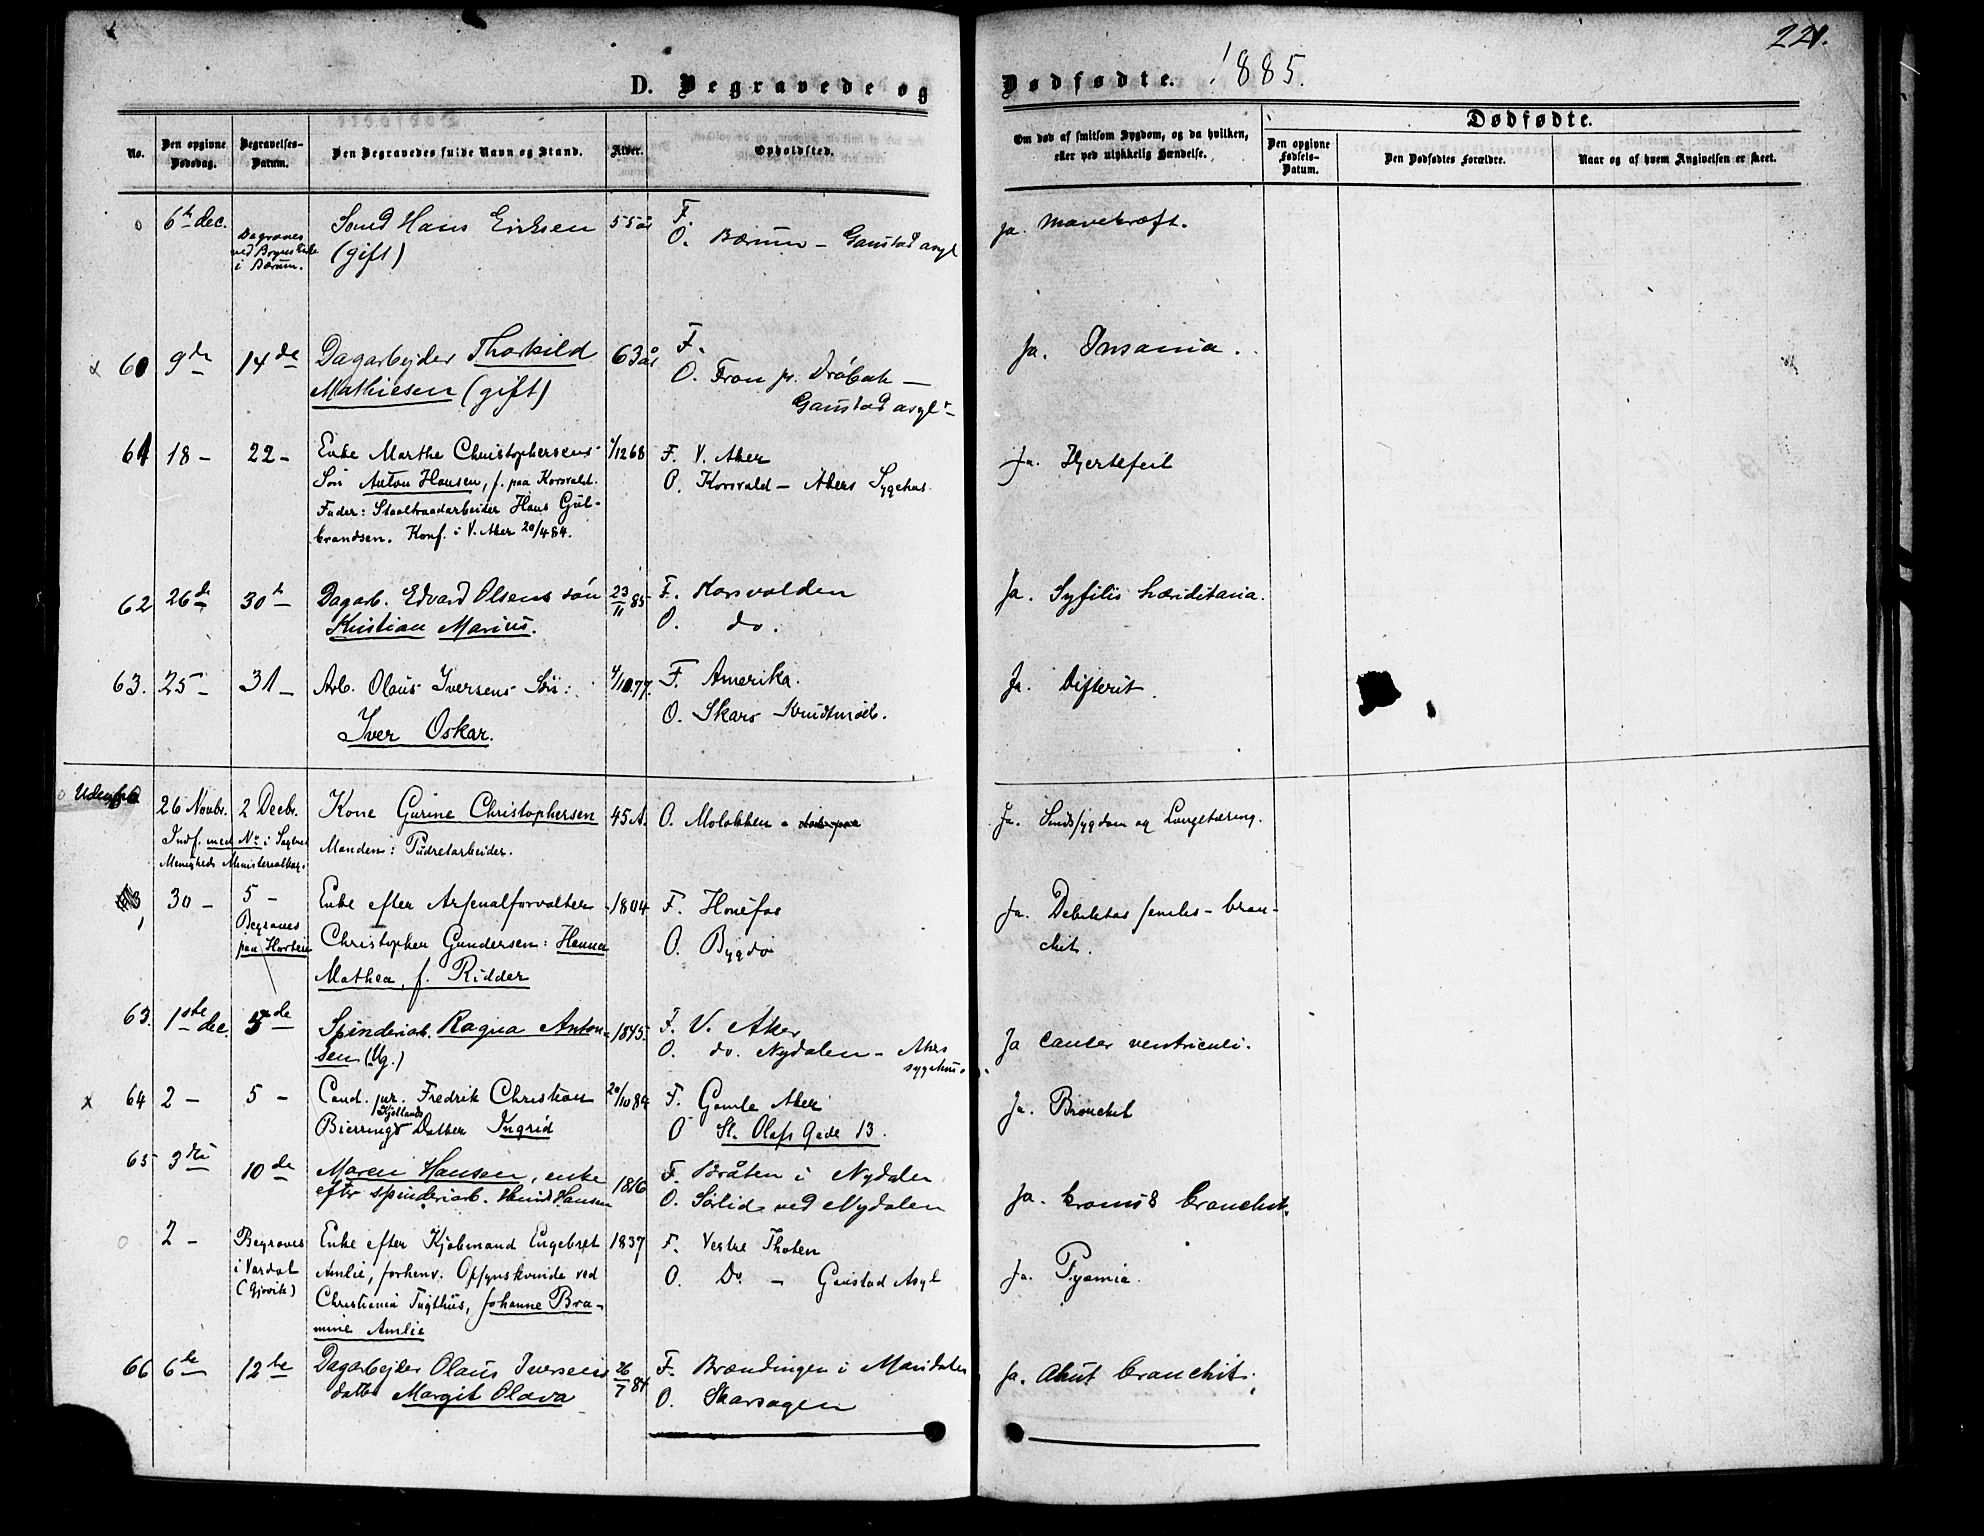 221.
D. Begravede og
Dødfødte. 1885.
No.
Den opgivne Dødsdag.
Begravelses-Datum.
Den Begravedes fulde Navn og Stand.
Alder.
Opholdsted.
Om død af smitsom Sygdom, og da hvilken, eller ved ulykkelig Hændelse.
Dødfødte.
Den opgivne Fødsels-Datum.
Den Dødfødtes Forældre.
Naar og af hvem Angivelsen er skeet.
6te dec.
Begraves
i Bærum.
Hans Eriksen
(gift)
55 år
F.
O. Bærum - Gaustad asyl
Ja. Mavekræft.
60 9de 14de Dagarbejder Thorkild
Mathiesen (gift)
63 år
F.
O. Fron pr. Drøbak —
Gaustad asyl
Ja. Insania.
61 18 - 22 - Enke Marthe Christophersens
Søn Anton Hansen, f. paa Korsvald.
Fader: Staaltraadarbeider Hans Gul-
brandsen. Konf. i V. Aker 20/4 84.
1/12 68
F. V. Aker
O. Korsvald - Akers Sygehus
Ja. Hjertefeil
62 26de 30te Dagarb. Edvard Olsens søn
Kristian Marius.
23/11 85
F. Korsvolden
O. do.
Ja. Syfilis hæriditaria.
63. 25 - 31 - Arb. Olaus Iversens Søn:
Iver Oskar.
4/10 77.
F. Amerika.
O. Skars
Ja. Difterit.
26 Novbr. 2 Decbr.
Indf. med No i
Menigheds Ministerialbog.
Kone Gurine Christophersen
Manden: Pudretarbeider.
45 A.
O. Molokken
Ja. Sindssygdom og Lungetæring.
30 - 5 -
Begraves
paa Horten
Enke efter Arsenalforvalter
Christopher Gundersen: Hanna
Mathea, f. Ridder
1804
F. Hønefos
O. Bygdø
Ja. Debilitas senilis - bron-
chit.
63. 1ste dec. 5de
Spinderiarb. Ragna Anton-
sen (Ug.)
1845.
F. V. Aker
O. do. Nydalen - Akers
sygehus.
Ja cancer ventriculi.
64 2 - 5 - Cand. jur. Fredrik Christian
Kjellands
Bierrings Datter Ingrid
20/10 84
F. Gamle Aker
O St. Olafs Gade 13.
Ja. Bronchit
65 3die 10de Maren Hansen, enke
efter spinderiarb. Hansen
1816
F. Bråten i Nydalen
O. Sørlid ved Nydalen
Ja. kronisk bronchit.
2 - Begraves
i Vardal
(Gjøvik)
Enke efter Kjøbmand Engebret
Amlie, forhenv. Opsynskvinde ved
Christiania Tugthus, Johanne Bra-
mine Amlie
1837
F. Vestre Thoten
O. Do - Gaustad Asyl
Ja. Pyæmie.
66 6te 12te Dagarbejder Olaus Iversens
datter Margit Olava
26/7 84
F. Brændingen i Maridalen
O. Skarsagen
Ja. Akut bronchit.